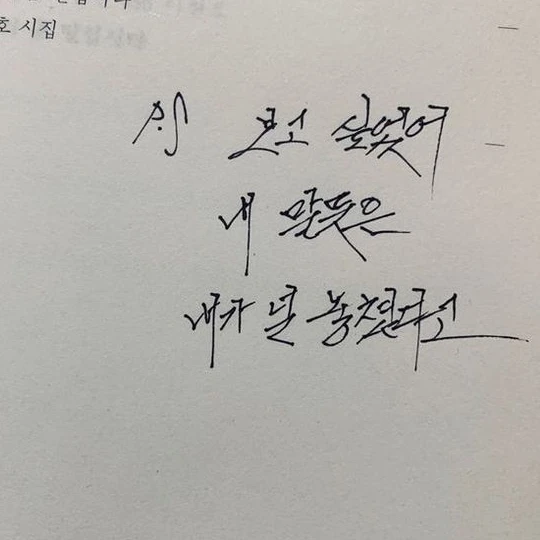 호 시집
P.S 보고 싶었어
내 말뜻은
내가 널 놓쳤다고